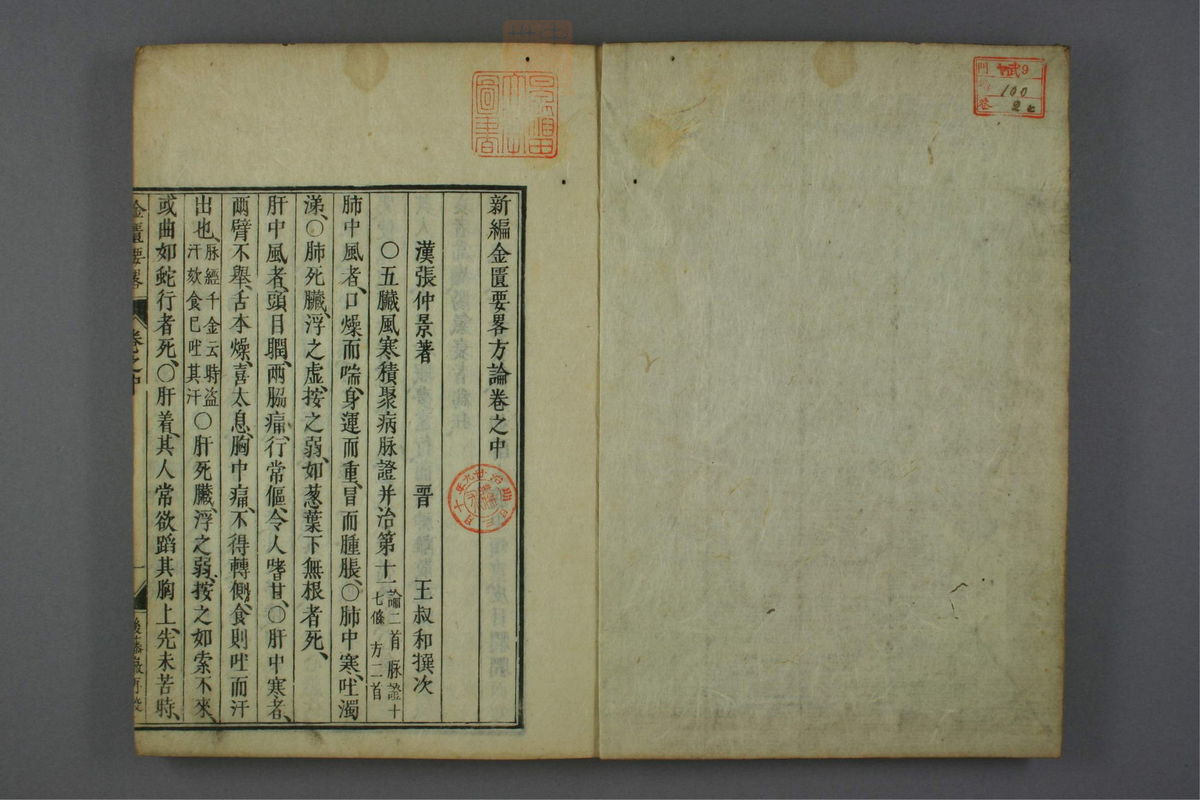 新編金匱要畧方論卷之中
漢張仲景著 晋 王叔和撰次
〇五臟風寒積聚病脉證并治第十一 論二首 脉證十七條 方二首
肺中風者、口燥而喘、身運而重、冒而腫脹、〇肺中寒、吐濁
涕、〇肺死臟、浮之虛、按之弱、如葱葉下無根者死、
肝中風者、頭目瞤、兩脇痛、行常傴、令人嗜甘、〇肝中寒者、
兩臂不舉、舌本燥、喜太息、胸中痛、不得轉側、食則吐而汗
出也、脉經千金云時盗汗欬食已吐其汁〇肝死臟、浮之弱、按之如索不來、
或曲如蛇行者死、〇肝着、其人常欲蹈其胸上、先未苦時、
金匱要畧 卷之中 一
圖書
9
100
2